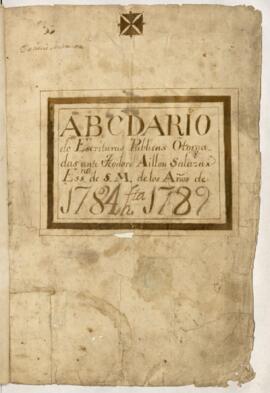 ABCDARIO
de Escrituras Publicas Otorga
das ante Teodoro Aillon Salazar
Essno de S. M. de los Años de
1784 hta 1789